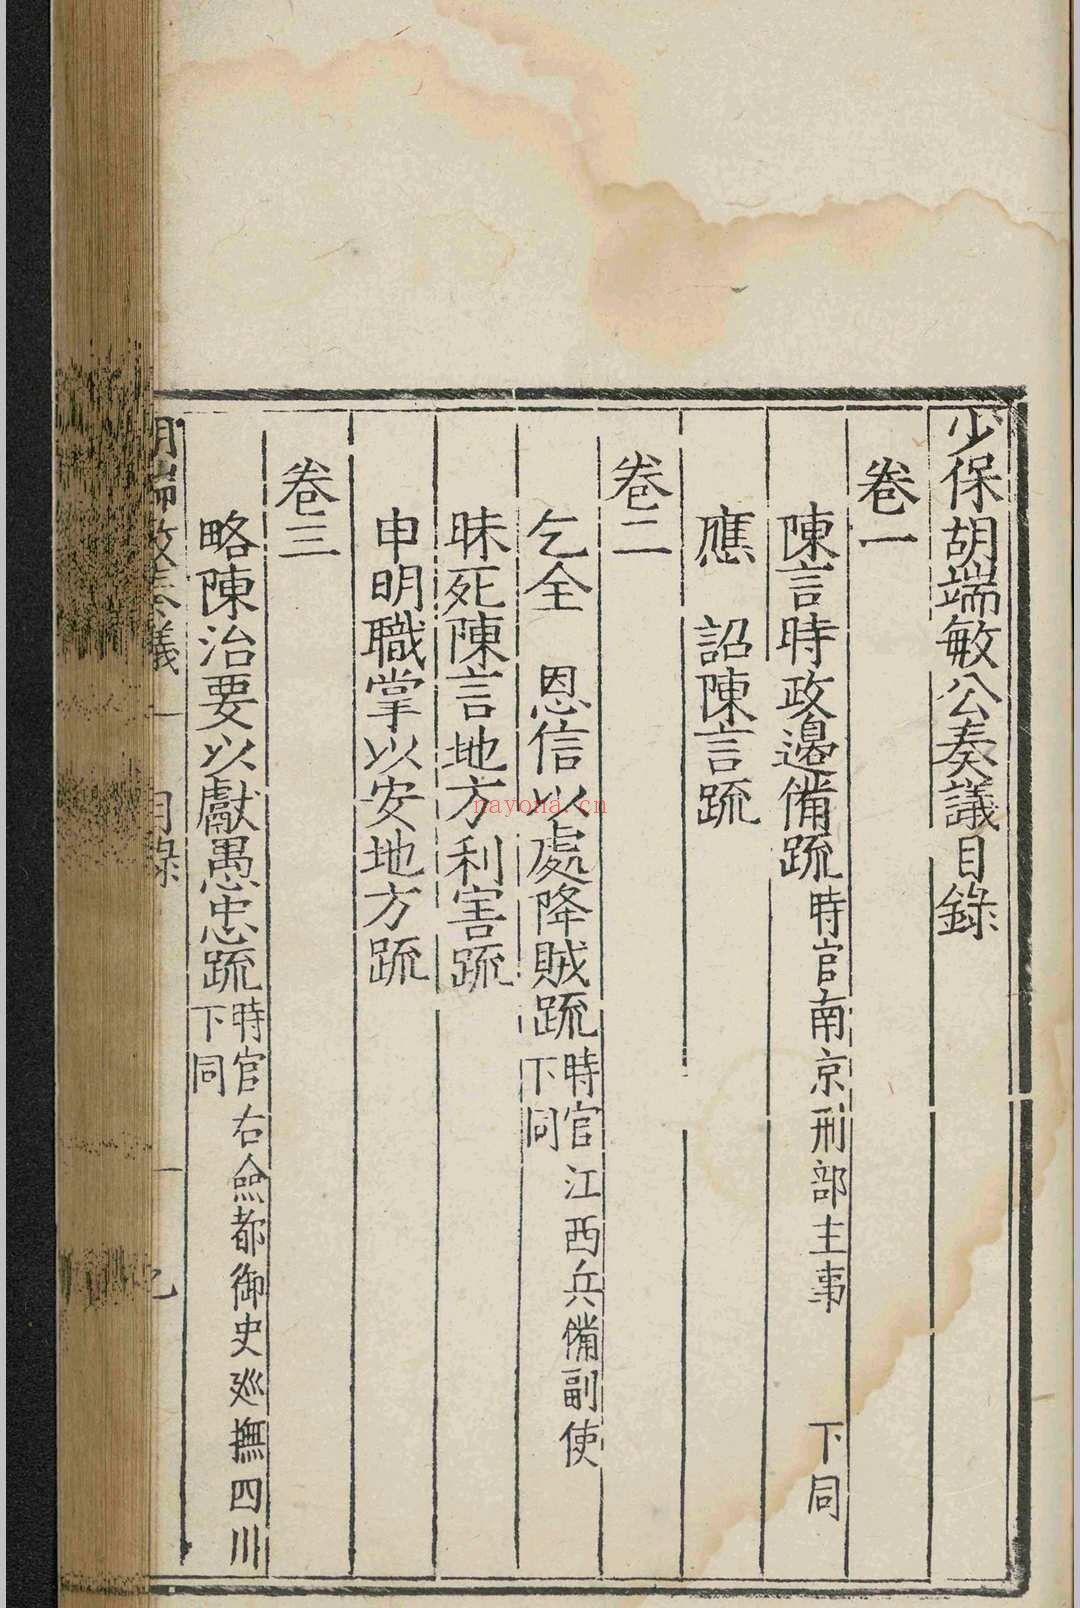 少保胡端敏公奏議目錄
卷一
陳言時政邊備疏時官南京刑部主事 下同
應 詔陳言疏
卷二
乞全 恩信以處降賊疏時官江西兵備副使下同
昧死陳言地方利害疏
申明職掌以安地方疏
卷三
略陳治要以獻愚忠疏時官右僉都御史廵撫四川下同
nayona.cn